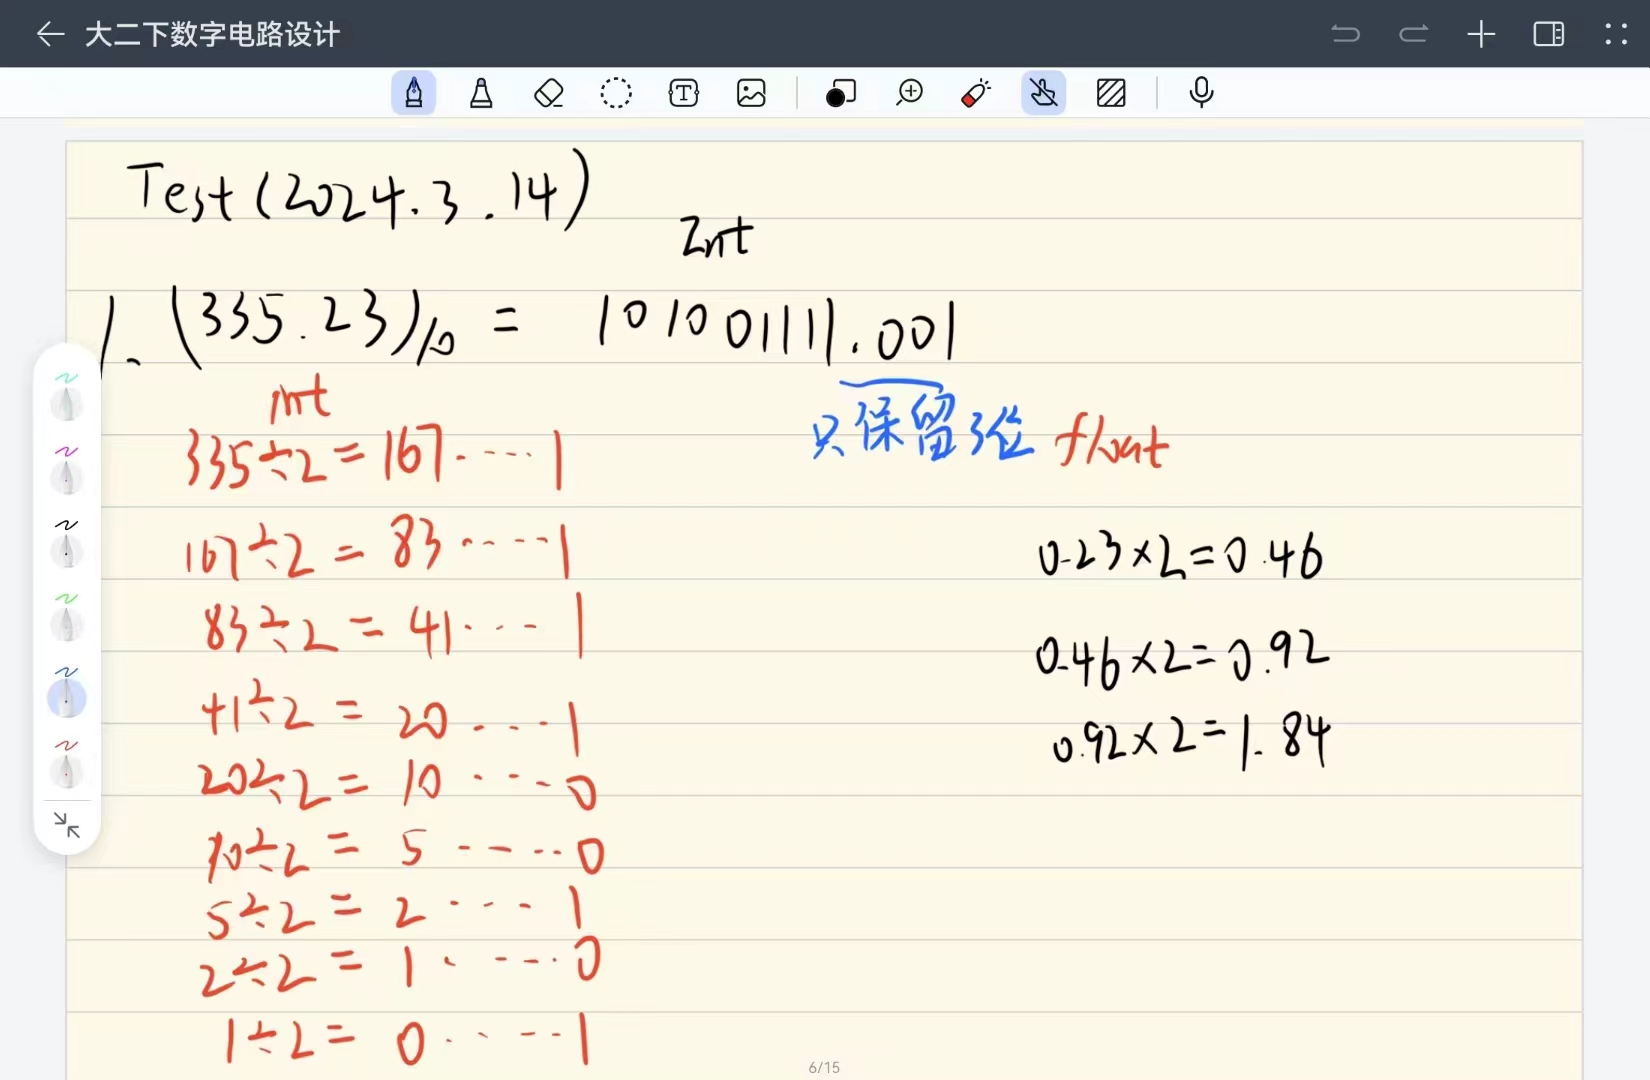 大二下数字电路设计
Test(2024.3.14)
Int
1. (335.23)10 = 101001111.001
int
只保留3位 float
335÷2=167....1
167÷2=83....1
83÷2=41...1
41÷2=20...1
20÷2=10...0
10÷2=5....0
5÷2=2...1
2÷2=1....0
1÷2=0....1
0.23×2=0.46
0.46×2=0.92
0.92×2=1.84
6/15